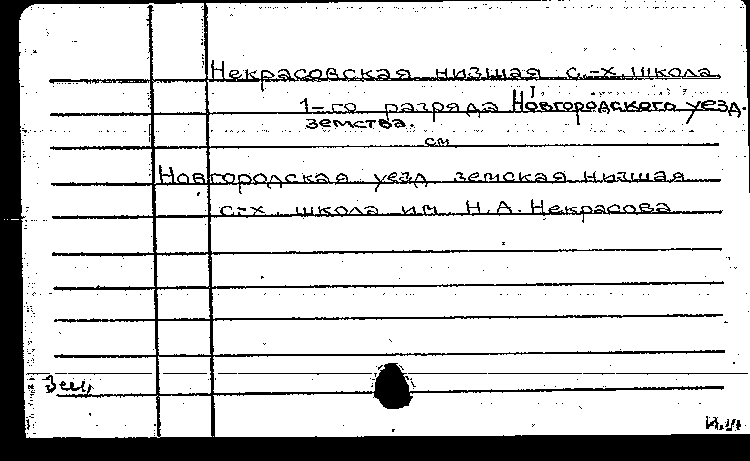 Некрасовская низшая с.-х. школа
1-го разряда Новгородского уезд.
земства.
см
Новгородская уезд. земская низшая
с.-х. школа им. Н.А. Некрасова